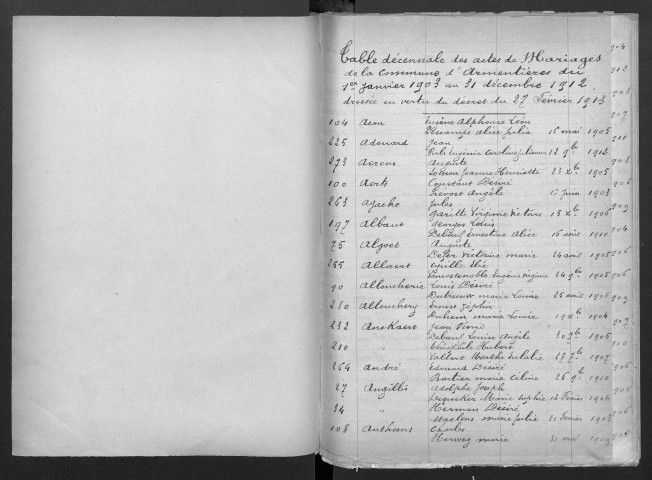 Table décennale des actes de Mariages
de la Commune d'Armentières du
1er Janvier 1903 au 31 décembre 1912,
dressée en vertu du décret du 27 Février 1913
104 Acou Eugène Alphonse Léon
Descamps Alice Julie 16 mai 1905
225 Adouard Jean
Eugénie Caroline 12 9bre 1912
273 Aerens Auguste
Jeanne Henriette 23 Xbre 1905
100 Aerts Constant Désiré
Prevost Angèle Juin 1903
263 Agache Jules
Garitte Virginie Victoire 15 Xbre 1906
197 Albaut Georges Louis
Debeuf Ernestine Alice 16 août 1910
75 Algoet Auguste
Victorine Marie 24 avril 1905
255 Allaert Cyrille Elie
Eugénie Virginie 24 9bre 1905
90 Allancherie Louis Désiré
Dubreux Marie Louise 25 avril
210 Allanchery Ernest Zéphir
Duhem Marie Louise 19 Xbre 1904
232 Jean Pierre
Debeuf Louise Angèle 30 7bre 1905
210 " Théophile Hubert
Marthe Eulalie 27 7bre 1907
254 André Edouard Désiré
Bartier Marie Céline 26 9bre 1910
27 Angillis Adolphe Joseph
Dequeker Marie Sophie 12 Février 1904
34 " Herman Désiré
Staelens Marie Julie 21 Février 1903
108 Anthoons Charles
Herweg Marie 31 mai